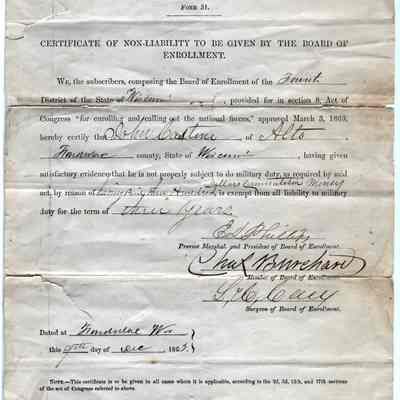 FORM 31.
CERTIFICATE OF NON-LIABILITY TO BE GIVEN BY THE BOARD OF
ENROLLMENT.
WE, the subscribers, composing the Board of Enrollment of the Fourth
District of the State of Wisconsin, provided for in section 8, Act of
Congress "for enrolling and calling out the national forces," approved March 3, 1863,
hereby certify that John of Alto
county, State of Wisconsin, having given
satisfactory evidence that he is not properly subject to do military duty, as required by said
act, by reason of paying three hundred dollars commutation money is exempt from all liability to military
duty for the term of three years.
Provost Marshal, and President of Board of Enrollment.
Chas Burchard
Member of Board of Enrollment.
Surgeon of Board of Enrollment.
Dated at Fondulac Wis
this day of Dec 1863.
NOTE.—This certificate is to be given in all cases where it is applicable, according to the 2d, 3d, 13th, and 17th sections
of the act of Congress referred to above.